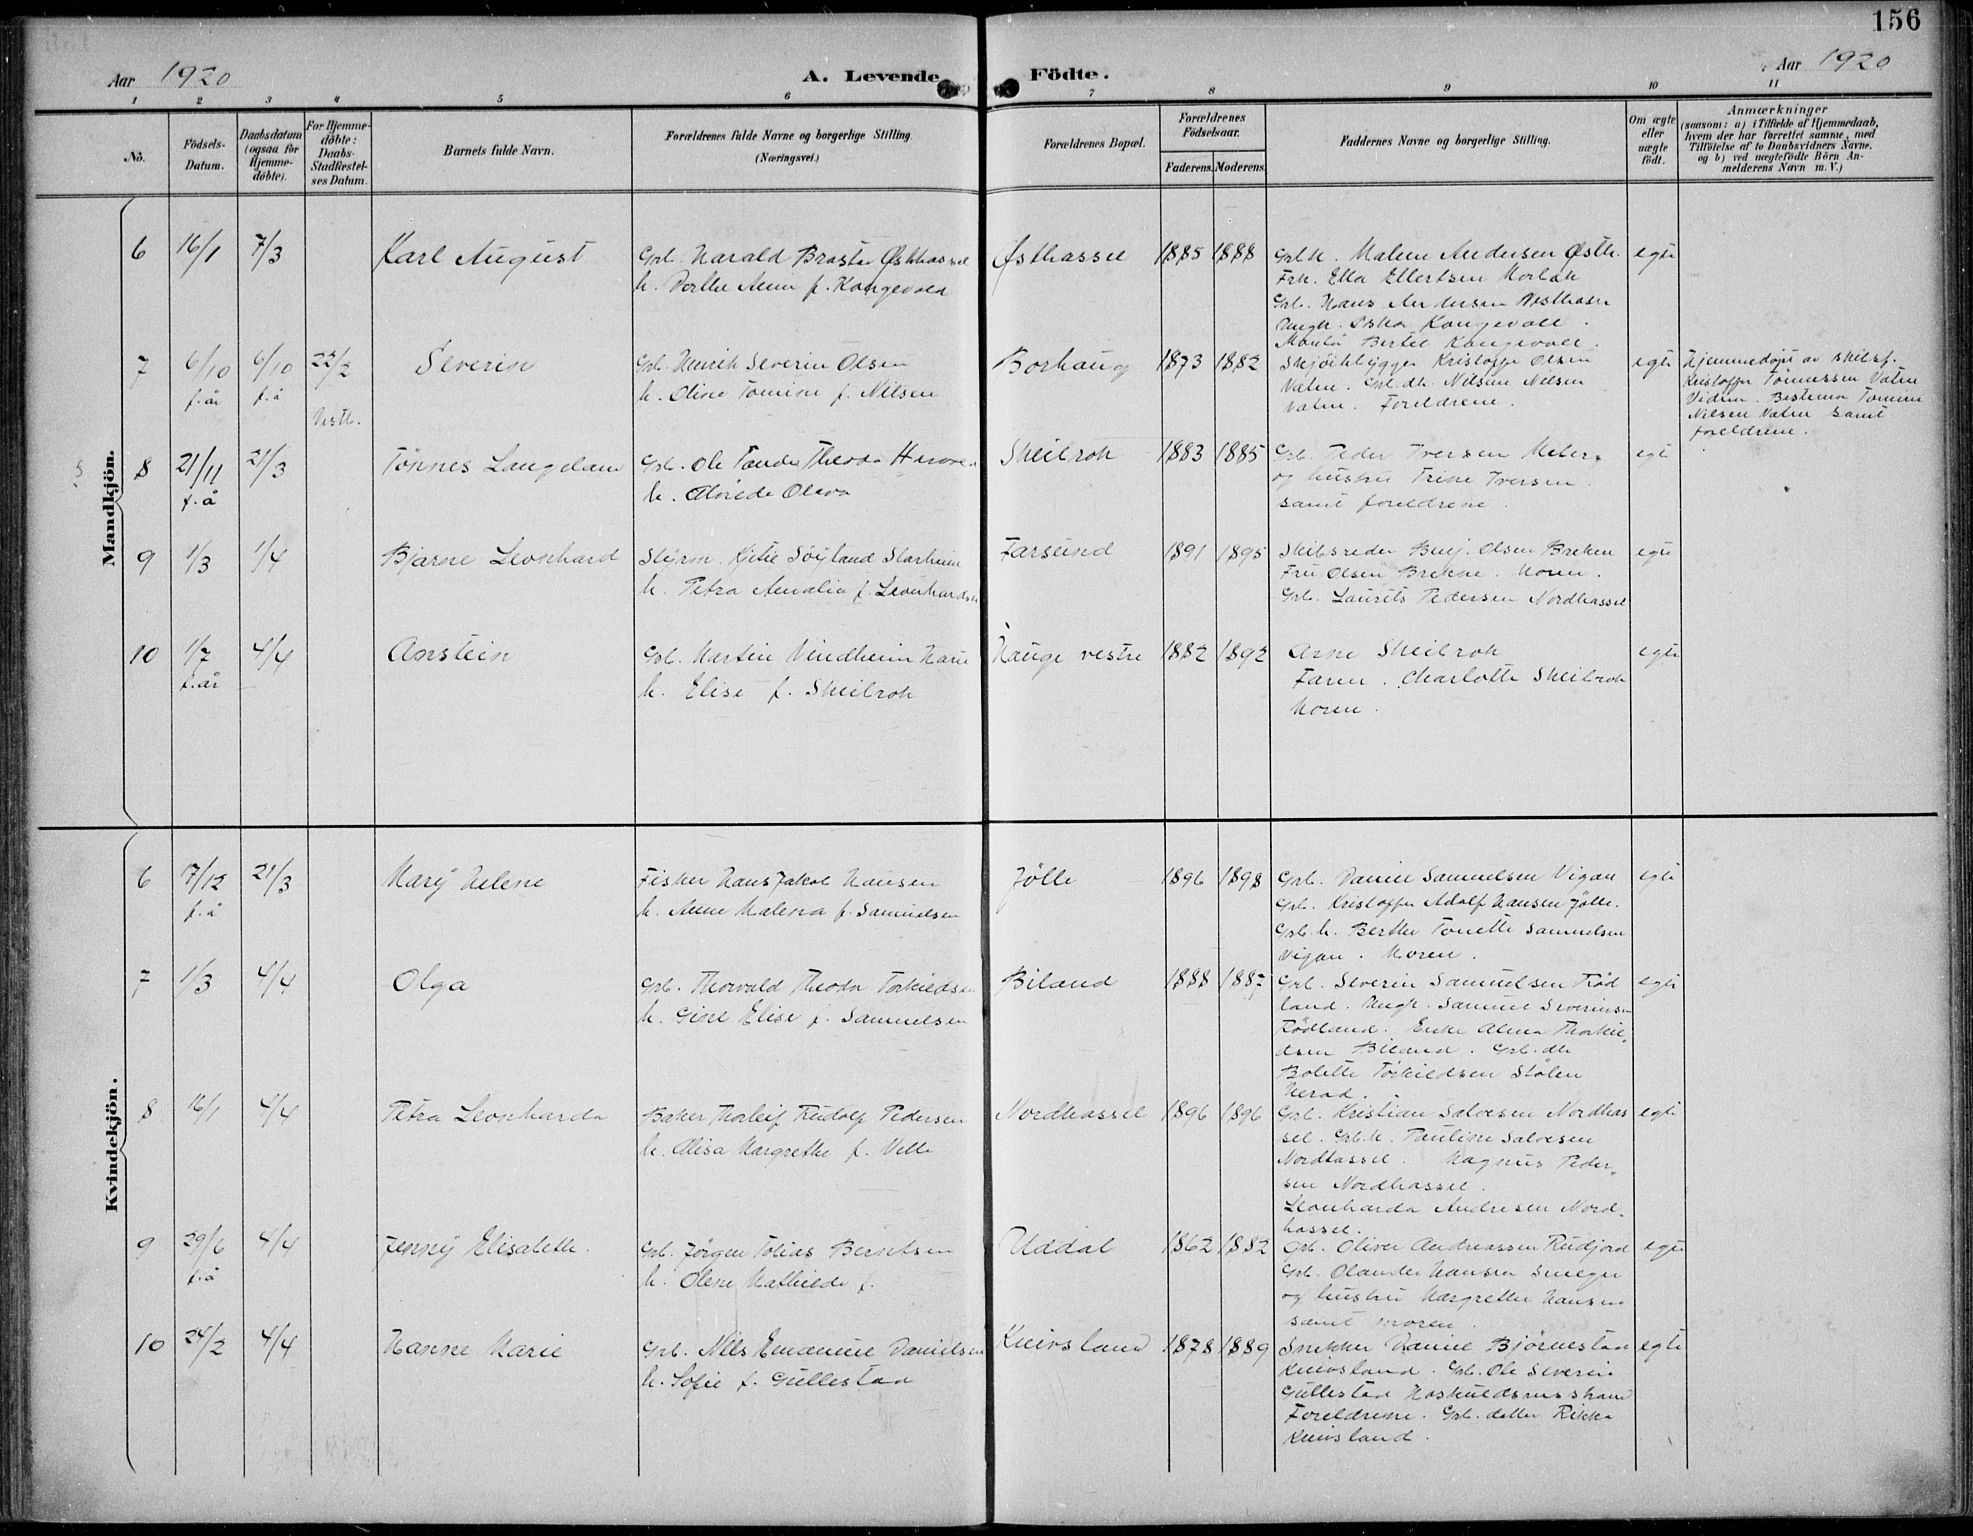 156
Aar 1920
A. Levende Födte.
Aar 1920
1 2 3 4 5 6 7 8 9 10 11
No.
Födsels-
Datum.
Daabsdatum
(ogsaa for
Hjemme-
döbte).
For Hjemme-
döbte:
Daabs-
Stadfæstel-
ses Datum.
Barnets fulde Navn.
Forældrenes fulde Navne og borgerlige Stilling
(Næringsvei.)
Forældrenes Bopæl.
Forældrenes
Födselsaar.
Faderens. Moderens.
Faddernes Navne og borgerlige Stilling.
Om ægte
eller
uægte
födt.
Anmærkninger
(saasom: a) i Tilfælde af Hjemmedaab,
hvem der har forrettet samme, med
Tilföielse af to Daabsvidners Navne.
og b) ved uægtefödte Börn An-
melderens Navn m. V.)
Mandkjön.
6 16/1 7/3 Karl August
Grb. Harald Brastø Østhassel
h. Dorthe Anna f. Kongevold
Østhassel 1885 1888
Grb.k. Malene Andersen Østh.
Frk. Ella Ellertsen
Grb. Hans Andersen Vesthassel
Ungk. Kongevold.
Bertel Kongevold.
egte
7 6/10 6/10 22/2 Severin
f. år f. å
Vestb.
Grb. Henrik Severin Olsen
h. Oline Tomine f. Nilsen
Borhaug 1873 1882
Kristoffer Olsen
Vatne. Grb. dtr. Nilsine Nilsen
Vatne. Foreldrene.
egte
Hjemmedøpt av
Kristoffer Tønnessen Vatne
Vidner. Bestemor Tomine
Nilsen Vatne samt
foreldrene.
8 21/11 21/3 Tønnes Langeland
f. å
Grb. Ole Theodor
h. Alvilde Olava
Skeibrok 1883 1885
Grb. Peder Iversen
og hustru Trine Iversen.
samt foreldrene.
egte
9 1/3 1/4 Bjarne Leonhard
Styrm. Kjetil Söyland Starheim
h. Petra Amalia f. Leonhardsen
Farsund 1891 1895
Skibsreder Olsen Brekne
Fru Olsen Brekne. Moren.
Grb. Laurits Pedersen Nordhassel
egte
10 1/7 4/4 Arnstein
f. år
Grb. Martin Vindheim Hauge
h. Elise f. Skeibrok
Hauge vestre 1882 1892
Arne Skeibrok
Faren. Charlotte Skeibrok
Moren.
egte
Kvindekjön.
6 17/12 21/3 Mary Helene
f. å
Fisker Hans Jakob Hansen
h. Anne Malena f. Samuelsen
Jölle 1896 1898
Grb. Daniel Samuelsen Vigan
Grb. Kristoffer Adolf Hansen Jölle.
Grb. h. Berthe Tonette Samuelsen
Vigan. Moren.
egte
7 1/3 4/4 Olga
Grb. Thorvald Theodor Torkildsen
h. Gine Elise f. Samuelsen
Biland 1888 1887
Grb. Severin Samuelsen Röd
land. Ungk. Samuel Severinsen
Rödland. Enke Alma Thorkil-
dsen Biland. Grb. dtr.
Bolette Torkildsen Stölen
Herad.
egte
8 16/1 4/4 Petra Leonharda
Baker Thorleif Rudolf Pedersen
h. Alisa Margrethe f. Velle
Nordhassel 1896 1896
Grb. Kristian Salvesen Nordhas
sel. Grb.k. Pauline Salvesen
Nordhassel. Magnus Peder-
sen Nordhassel.
Leonharda Andresen Nord-
hassel.
egte
9 29/6 4/4 Jenny Elisabeth.
f. å
Grb. Jörgen Tobias Berntsen
h. Olene Mathilde f.
Uddal 1862 1882
Grb. Oliver Andreassen Rudjord
Grb. Olander Hansen
og hustru Margrethe Hansen
samt moren.
egte
10 24/2 4/4 Hanne Marie
Grb. Nils Emanuel Danielsen
h. Sofie f. Gullestad
Kueivsland 1878 1889
Snekker Daniel Bjørnestad
Kueivsland. Grb. Ole Severin
Gullestad
Foreldrene. Grb. datter Rikka
Kueivsland.
egte